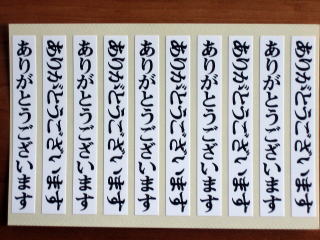 ありがとうございます
ありがとうございます
ありがとうございます
ありがとうございます
ありがとうございます
ありがとうございます
ありがとうございます
ありがとうございます
ありがとうございます
ありがとうございます